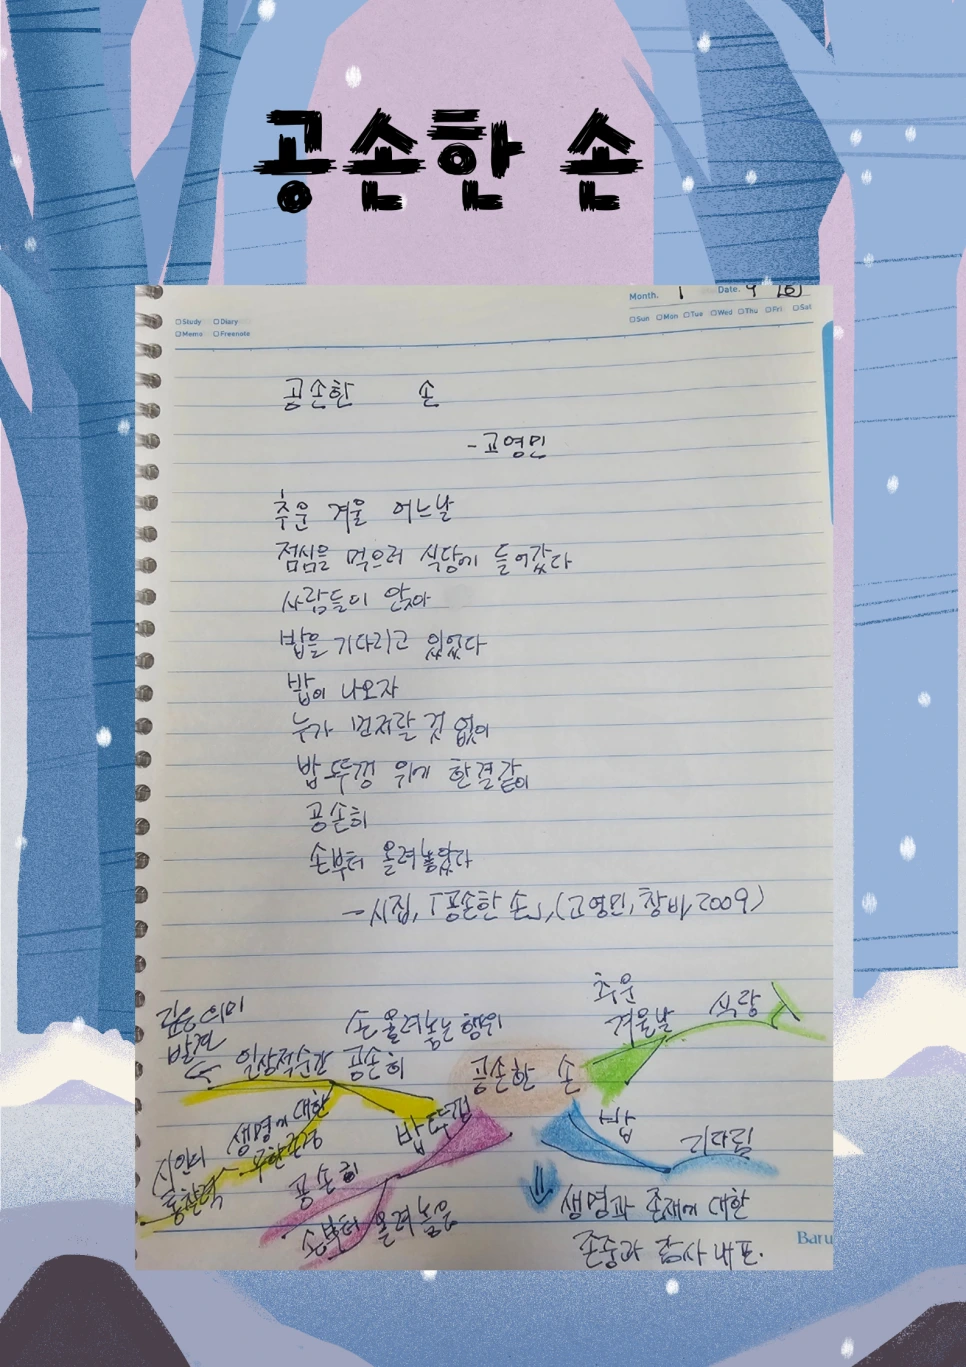 공손한 손
Month. 1 Date. 9
□Study □Diary
□Memo □Freenote
□Sun □Mon □Tue □Wed □Thu □Fri □Sat
공손한 손
- 고영민
추운 겨울 어느날
점심을 먹으러 식당에 들어갔다
사람들이 앉아
밥을 기다리고 있었다
밥이 나오자
누가 먼저랄 것 없이
밥뚜껑 위에 한결같이
공손히
손부터 올려놓았다
- 시집, 「공손한 손」, (고영민, 창비, 2009)
깊은 의미
발견
일상적순간
손 올려놓는 행위
공손히
공손한 손
추운
겨울날
식당
생명에 대한
무한긍정
시인의
통찰력
밥뚜껑
공손히
손부터 올려놓음
밥
기다림
생명과 존재에 대한
존중과 감사 내포.
Baru